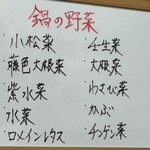 鍋の野菜
・小松菜
・藤色大根菜
・紫水菜
・水菜
・ロメインレタス
・壬生菜
・大根菜
・わさび菜
・かぶ
・チンゲン菜